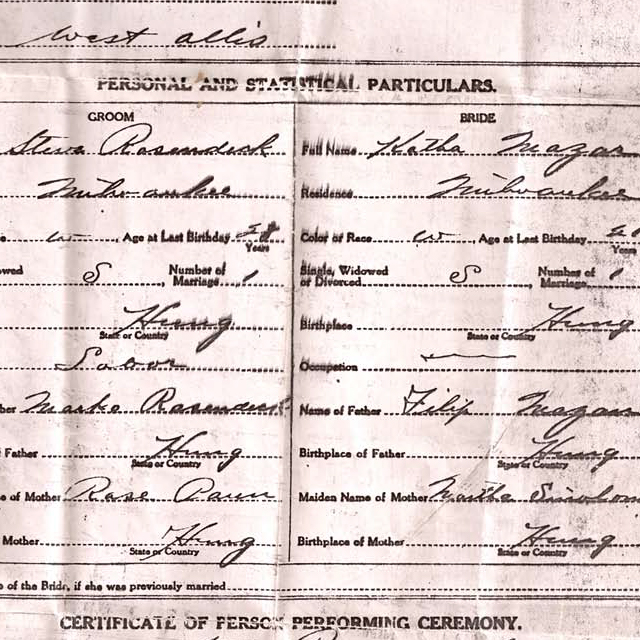 West Allis
PERSONAL AND STATISTICAL PARTICULARS.
GROOM BRIDE
Steve Rosendeck Full Name Katha Mazar
Milwaukee Residence Milwaukee
w Age at Last Birthday 28 Years Color or Race w Age at Last Birthday Years
owed S Number of Marriage 1 Single, Widowed or Divorced S Number of Marriage 1
Hung State or Country Birthplace Hung State or Country
Labor Occupation
her Marko Rosendeck Name of Father Filip Mazar
Father Hung State or Country Birthplace of Father Hung State or Country
e of Mother Rose Maiden Name of Mother Martha
Mother Hung State or Country Birthplace of Mother Hung State or Country
e of the Bride, if she was previously married
CERTIFICATE OF PERSON PERFORMING CEREMONY.